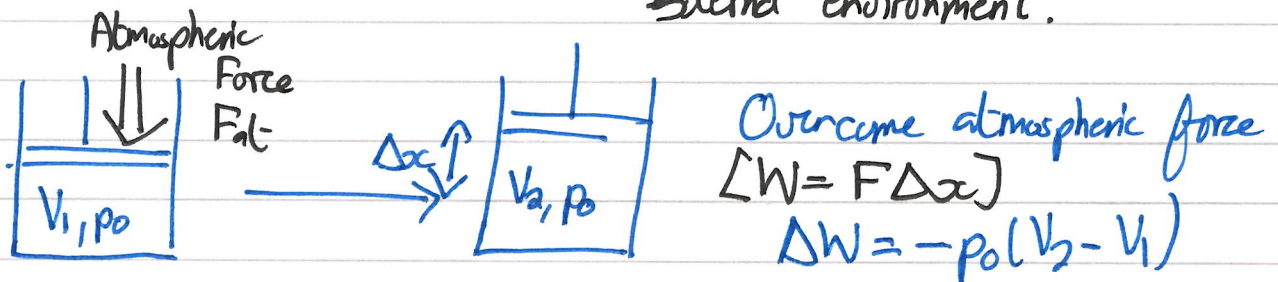 environment.
Atmospheric
Force
Fat
Δx
V₁, p₀
V₂, p₀
Overcome atmospheric force
[W = FΔx]
ΔW = -p₀(V₂ - V₁)